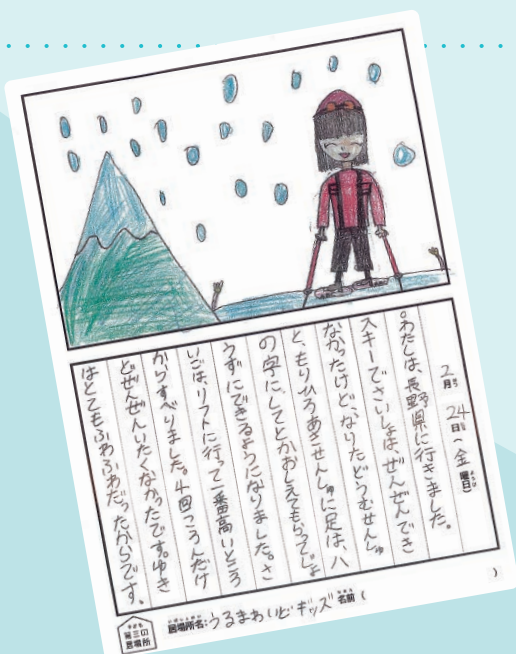 2月 24日(金曜日)
。わたしは、長野県に行きました。
スキーでさいしょは、ぜんぜんでき
なかったけど、なりたどうむせんしゅ
と、もりひろあきせんしゅに足は、ハ
の字にしてとかおしえてもらってじょ
うずにできるようになりました。さ
いごは、リフトに行って一番高いところ
からすべりました。4回ころんだけ
どぜんぜんいたくなかったです。ゆき
はとてもふわふわだったからです。
第三の
居場所
居場所名:うるまわいどキッズ 名前( )